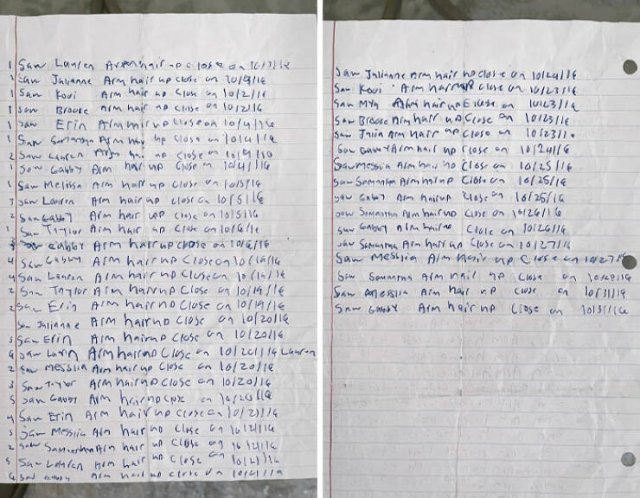 1 Saw Lauren Arm hair up close on 10/2/16
1 Saw Julianne Arm hair up close on 10/2/16
1 Saw Kovi Arm hair up close on 10/2/16
1 Saw Brooke Arm hair up close on 10/2/16
1 Saw Erin Arm hair up close on 10/4/16
1 Saw Arm hair up close on 10/4/16
2 Saw Lauren Arm hair up close on 10/4/16
Saw Gabby Arm hair up close on 10/4/16
1 Saw Melissa Arm hair up close on 10/5/16
3 Saw Lauren Arm hair up close on 10/5/16
2 Saw Gabby Arm hair up close on 10/5/16
1 Saw Taylor Arm hair up close on 10/6/16
3 Saw Gabby Arm hair up close on 10/6/16
4 Saw Gabby Arm hair up close on 10/16/16
4 Saw Lauren Arm hair up close on 10/16/16
2 Saw Taylor Arm hair up close on 10/19/16
2 Saw Erin Arm hair up close on 10/19/16
Saw Julianne Arm hair up close on 10/20/16
Saw Erin Arm hair up close on 10/20/16
Saw Arm hair up close on 10/20/16 Lauren
2 Saw Messiia Arm hair up close on 10/20/16
3 Saw Taylor Arm hair up close on 10/20/16
5 Saw Gabby Arm hair up close on 10/20/16
4 Saw Erin Arm hair up close on 10/21/16
3 Saw Messiia Arm hair up close on 10/21/16
2 Saw Samantha Arm hair up close on 10/21/16
Saw Lauren Arm hair up close on 10/21/16
6 Saw Gabby Arm hair up close on 10/21/16
Saw Julianne Arm hair up close on 10/21/16
Saw Kovi Arm hair up close on 10/23/16
Saw Mya Arm hair up close on 10/23/16
Saw Brooke Arm hair up close on 10/23/16
Saw Julia Arm hair up close on 10/23/16
Saw Arm hair up close on 10/24/16
Saw Messiia Arm hair up close on 10/25/16
Saw Samantha Arm hair up close on 10/25/16
Saw Gabby Arm hair up close on 10/25/16
Saw Samantha Arm hair up close on 10/26/16
Saw Gabby Arm hair up close on 10/26/16
Saw Samantha Arm hair up close on 10/27/16
Saw Messiia Arm hair up close on 10/27/16
Saw Samantha Arm hair up close on 10/29/16
Saw Messiia Arm hair up close on 10/31/16
Saw Gabby Arm hair up close on 10/31/16